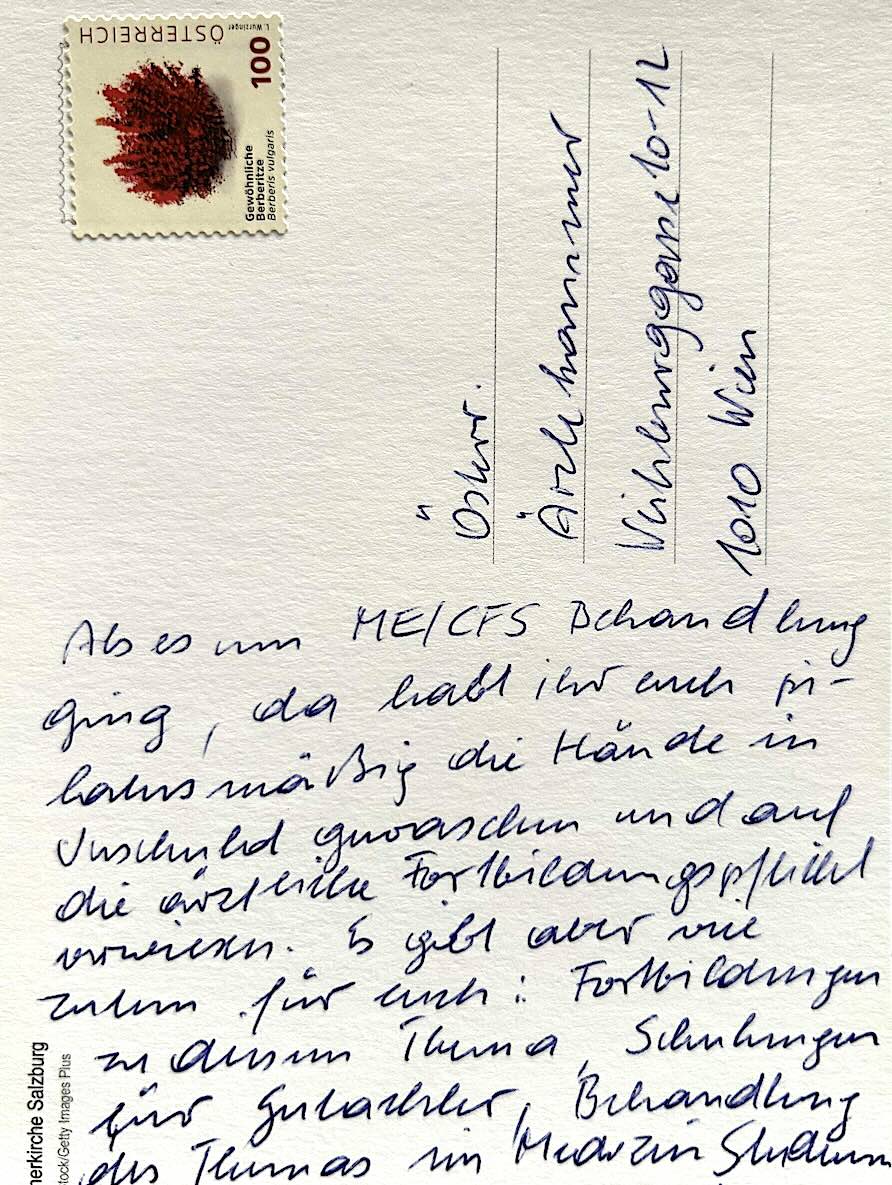 ÖSTERREICH
L. Wurzinger
100
Gewöhnliche
Berberitze
Berberis vulgaris
Österr.
Ärztekammer
Weihburggasse 10-12
1010 Wien
Als es um ME/CFS Behandlung
ging, da habt ihr euch
die Hände in
Unschuld gewaschen und auf
die ärztliche Fortbildungspflicht
verwiesen. Es gibt aber viel
zu tun für euch: Fortbildungen
zu diesem Thema, Schulungen
für Gutachter, Behandlung
des Themas im Medizin Studium
nerkirche Salzburg
tock/Getty Images Plus